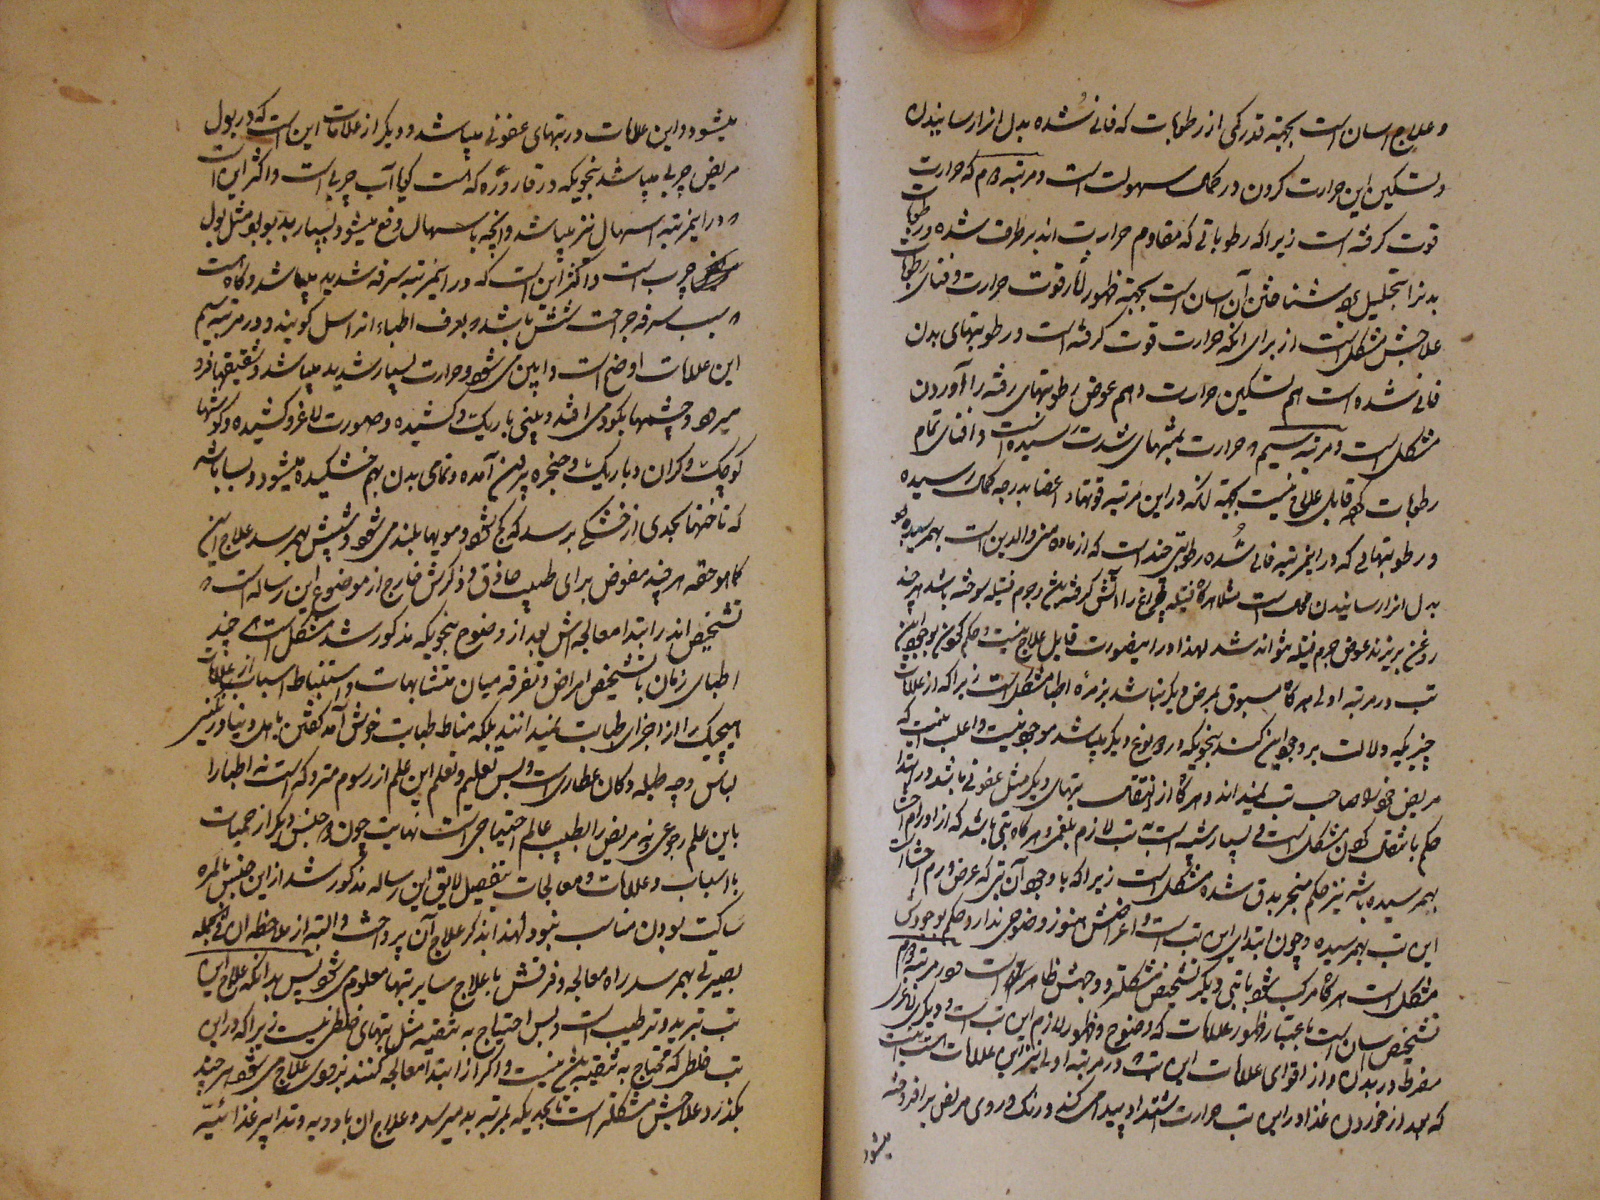 و علاج آسان است بجهة قدر کمی از رطوبات که فانی شده بدل انرا رسانیدن
و تسکین این حرارت کردن در کمال سهولت است و مرتبه دوم که حرارت
قوت گرفته است زیرا که رطوباتی که مقاوم حرارت اند برطرف شده و رطوبات
بدنرا بتحلیل شناختن آن آسان است بجهة ظهور آثار قوت حرارت و فنای رطوبات
علاجش مشکل است از برای انکه حرارت قوت گرفته است و رطوبتهای بدن
فانی شده است هم تسکین حرارت و هم عوض رطوبتهای رفته را آوردن
مشکل است و مرتبه سیم حرارت بمنتهای شدت رسیده است و افنای تمام
رطوبات کرده قابل علاج نیست بجهة انکه در این مرتبه قوتها و اعضا بدرجه کمال رسیده
و رطوبتهائی که در اینمرتبه فانی شده رطوبتی چند است که از ماده منی والدین است بهم رسیده بود
بدل انرا رسانیدن محال است مثلا هرگاه فتیله چراغ را آتش گرفته و جرم فتیله سوخته باشد هرچند
روغن بریزند عوض جرم فتیله نتواند شد لهذا در اینصورت قابل علاج نیست و حکم کردن بوجود این
تب در مرتبه اولی هرگاه مسبوق بمرض دیگر نباشد بزمره اطبا مشکل است زیرا که از علامات
چیزیکه دلالت بر وجود این کند بنحویکه در نوع دیگر میباشد موجود نیست و اغلب اینست که
مریض خود را صاحب تب نمیداند و هرگاه از انتقال تبهای دیگر مثل عفونی باشد در ابتدا
حکم بانتقال کردن مشکل است بسیار شبیه است به تب لازم بلغمی و هرگاه تبی باشد که از اورام احشا
بهم رسیده باشد نیز حکم منجر بدق شده مشکل است زیرا که با وجود آن تبی که عرض ورم احشا است
این تب بهم رسیده و چون ابتدای این تب است و اعراضش هنوز وضوحی ندارد حکم بوجودش
مشکل است هرگاه مرکب شود با تبی دیگر تشخیص مشکلتر و وجهش ظاهر است و در مرتبه دوم
تشخیص آسان است باعتبار ظهور علامات که وضوح و ظهور لازم این تب است و دیگر لاغری
مفرط در بدن و از اقوای علامات این تب در مرتبه اولی نیز این علامات است اینست
که بعد از خوردن غذا در این تب حرارت اشتداد پیدا می کند و رنگ و روی مریض برافروخته
میشود
میشود و این علامات در تبهای عفونی میباشد و دیگر از علامات این است که در بول
مریض چربی میباشد بنحویکه در قاروره که هست گویا آب چربی است و اکثر این است
در اینمرتبه اسهال نیز میباشد و آنچه باسهال دفع میشود بسیار بدبو بود مثل بول
چرب است و اکثر این است که در اینمرتبه سرفه شدید میباشد و گاه است
سبب سرفه جراحت شش باشد و بعرف اطباء انرا سل گویند و در مرتبه سیم
این علامات اوضح است و ابین می شود و حرارت بسیار شدید میباشد و شقیقها فرو
میرود و چشمها بگودی افتد و بینی باریک و کشیده و صورت لاغر و کشیده و گوشها
کوچک و گران و باریک و حنجره بیرون آمده و تمامی بدن بهم خشکیده میشود و بسا باشد
که ناخنها بحدی از خشکی برسد که کج شود و مویها بلند می شود و شپش بهمرسد علاج این
کما هو حقه هر چند مفوض برای طبیب حاذق و ذکرش خارج از موضوع این رساله است
تشخیص انرا ابتدا معالجه اش بعد از وضوح بنحویکه مذکور شد مشکل است چند
اطبای زمان با تشخیص امراض و تفرقه میان متشابهات و استنباط اسباب از علامات
هیچیک را از اجزای طبابت نمیدانند بلکه مناط طبابت خوش آمد گفتن باهل دنیا و رنگینی
لباس وجبه طبله و دکان عطاری است و بس تعلیم و تعلم این علم از رسوم متروکه است نه اطبا را
باین علم رجوعی نه مریض را بطبیب عالم احتیاجی است نهایت چون جنس دیگر از حمیات
با اسباب و علامات و معالجات بتفصیل لایق این رساله مذکور شد از این جنس بالمره
ساکت بودن مناسب نبود لهذا بذکر علاج آن پرداخت و البته از ملاحظه آن فی الجمله
بصیرتی بهمرسد راه معالجه و فرقش با علاج سایر تبها معلوم می شود پس بدانکه علاج این
تب تبرید و ترطیب است و بس احتیاج به تنقیه مثل تبهای خلطی نیست زیرا که در این
تب خلطی که محتاج به تنقیه باشد نیست و اگر از ابتدا معالجه کنند بزودی علاج می شود هر چند
بگذرد علاجش مشکلتر است تا بحدیکه بمرتبه بد میرسد و علاج ان بادویه و تدابیر غذائیه